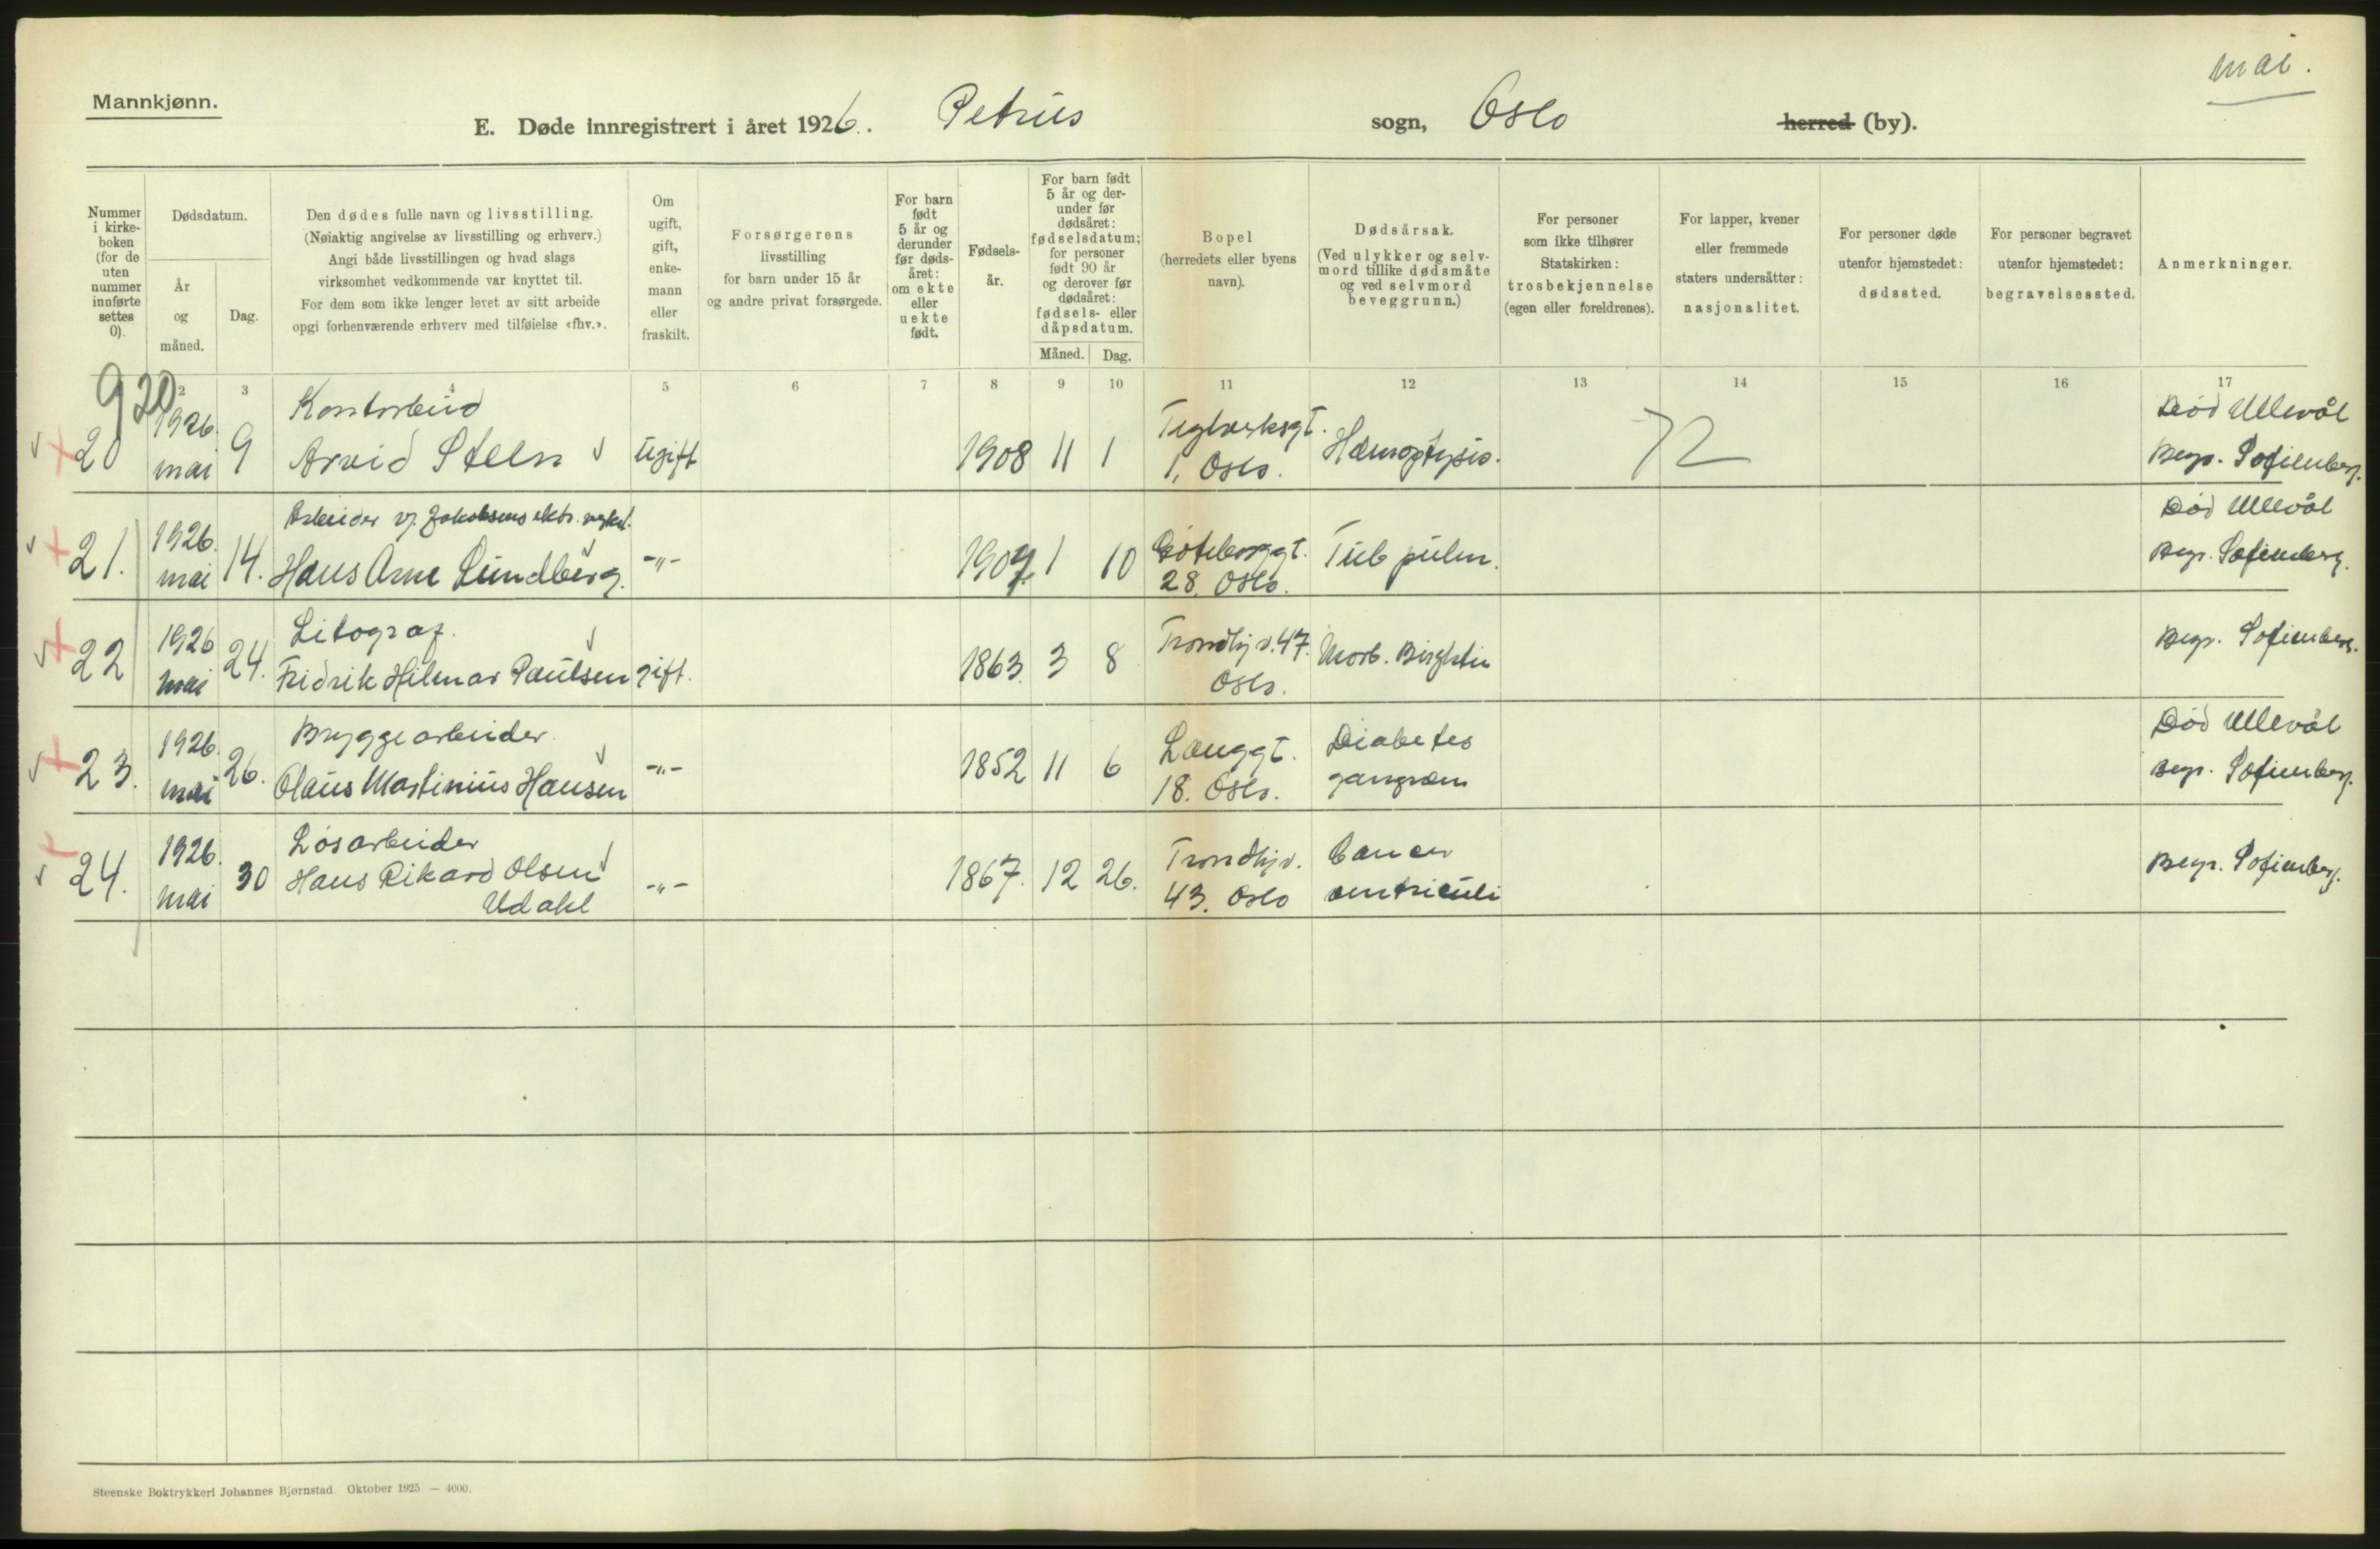 mai.
Mannkjønn.
E. Døde innregistrert i året 1926. Petrus sogn, Oslo herred (by).
Nummer i kirke-boken (for de uten nummer innførte settes 0).
Dødsdatum.
År og måned.
Dag.
Den dødes fulle navn og livsstilling.
(Nøiaktig angivelse av livsstilling og erhverv.)
Angi både livsstillingen og hvad slags
virksomhet vedkommende var knyttet til.
For dem som ikke lenger levet av sitt arbeide
opgi forhenværende erhverv med tilføielse «fhv.».
Om ugift, gift, enke-mann eller fraskilt.
Forsørgerens
livsstilling
for barn under 15 år
og andre privat forsørgede.
For barn født 5 år og derunder før døds-året: om ekte eller uekte født.
Fødsels-år.
For barn født 5 år og der-under før dødsåret: fødselsdatum; for personer født 90 år og derover før dødsåret: fødsels- eller dåpsdatum.
Måned. Dag.
Bopel
(herredets eller byens
navn).
Dødsårsak.
(Ved ulykker og selv-
mord tillike dødsmåte
og ved selvmord
beveggrunn.)
For personer
som ikke tilhører
Statskirken:
trosbekjennelse
(egen eller foreldrenes).
For lapper, kvener
eller fremmede
staters undersåtter:
nasjonalitet.
For personer døde
utenfor hjemstedet:
dødssted.
For personer begravet
utenfor hjemstedet:
begravelsessted.
Anmerkninger.
2 3 4 5 6 7 8 9 10 11 12 13 14 15 16 17
920
20 1926. mai 9 Kontorbud
Arvid Steen ugift 1908 11 1 Teglverksgt.
1, Oslo. Hæmoptysis. 72 Død Ullevål
Begr. Sofienberg.
21. 1926. mai 14. Arbeider v/ Jakobsens elektr. verkst.
Hans Arne Lundberg. -"- 1907. 1 10 Gøteborggt.
28. Oslo. Tub pulm. Død Ullevål
Begr. Sofienberg.
22 1926 mai 24. Litograf.
Fridrik Hilmar Paulsen gift. 1863. 3 8 Trondhj v. 47.
Oslo. Morb. Birghtii Begr. Sofienberg.
23. 1926. mai 26. Bryggearbeider.
Olaus Martinius Hansen -"- 1852 11 6 Langgt.
18. Oslo. Diabetes
gangræn Død Ullevål
Begr. Sofienberg.
24. 1926. mai 30 Løsarbeider
Hans Rikard Olsen
Udahl -"- 1867. 12 26. Trondhj v.
43. Oslo Cancer
ventriculi Begr. Sofienberg.
Steenske Boktrykkeri Johannes Bjørnstad. Oktober 1925. — 4000.